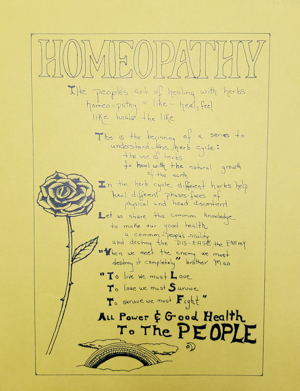 HOMEOPATHY
The peoples art of healing with herbs
homeo-pathy = like - heal, feel
like heals the like
This is the beginning of a series to
understand the herb cycle:
the use of herbs
to heal with the natural growth
of the earth
In the herb cycle, different herbs help
heal different phases/faces of
physical and head discontent
Let us share this common knowledge
to make our good health
a common people's reality
and destroy the DIS-EASE the ENEMY
"When we meet the enemy we must
destroy it completely" brother Mao
"To live we must Love
To love we must Survive
To survive we must Fight"
ALL Power & Good Health
To The PEOPLE